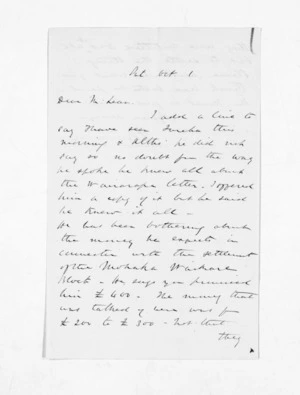 Oct 1
Dear McLean
I add a line to
say I have seen Tareha this
morning & altho' he did not
say so no doubt from the way
he spoke he knew all about
the Wairarapa letter. I offered
him a copy of it but he said
he knew it all -
He has been bothering about
the money he expects in
connection with the settlement
of the Mohaka Waikare
Block - He says you promised
him £400 - The money that
was talked of here was for
£200 to £300 - Not that
they